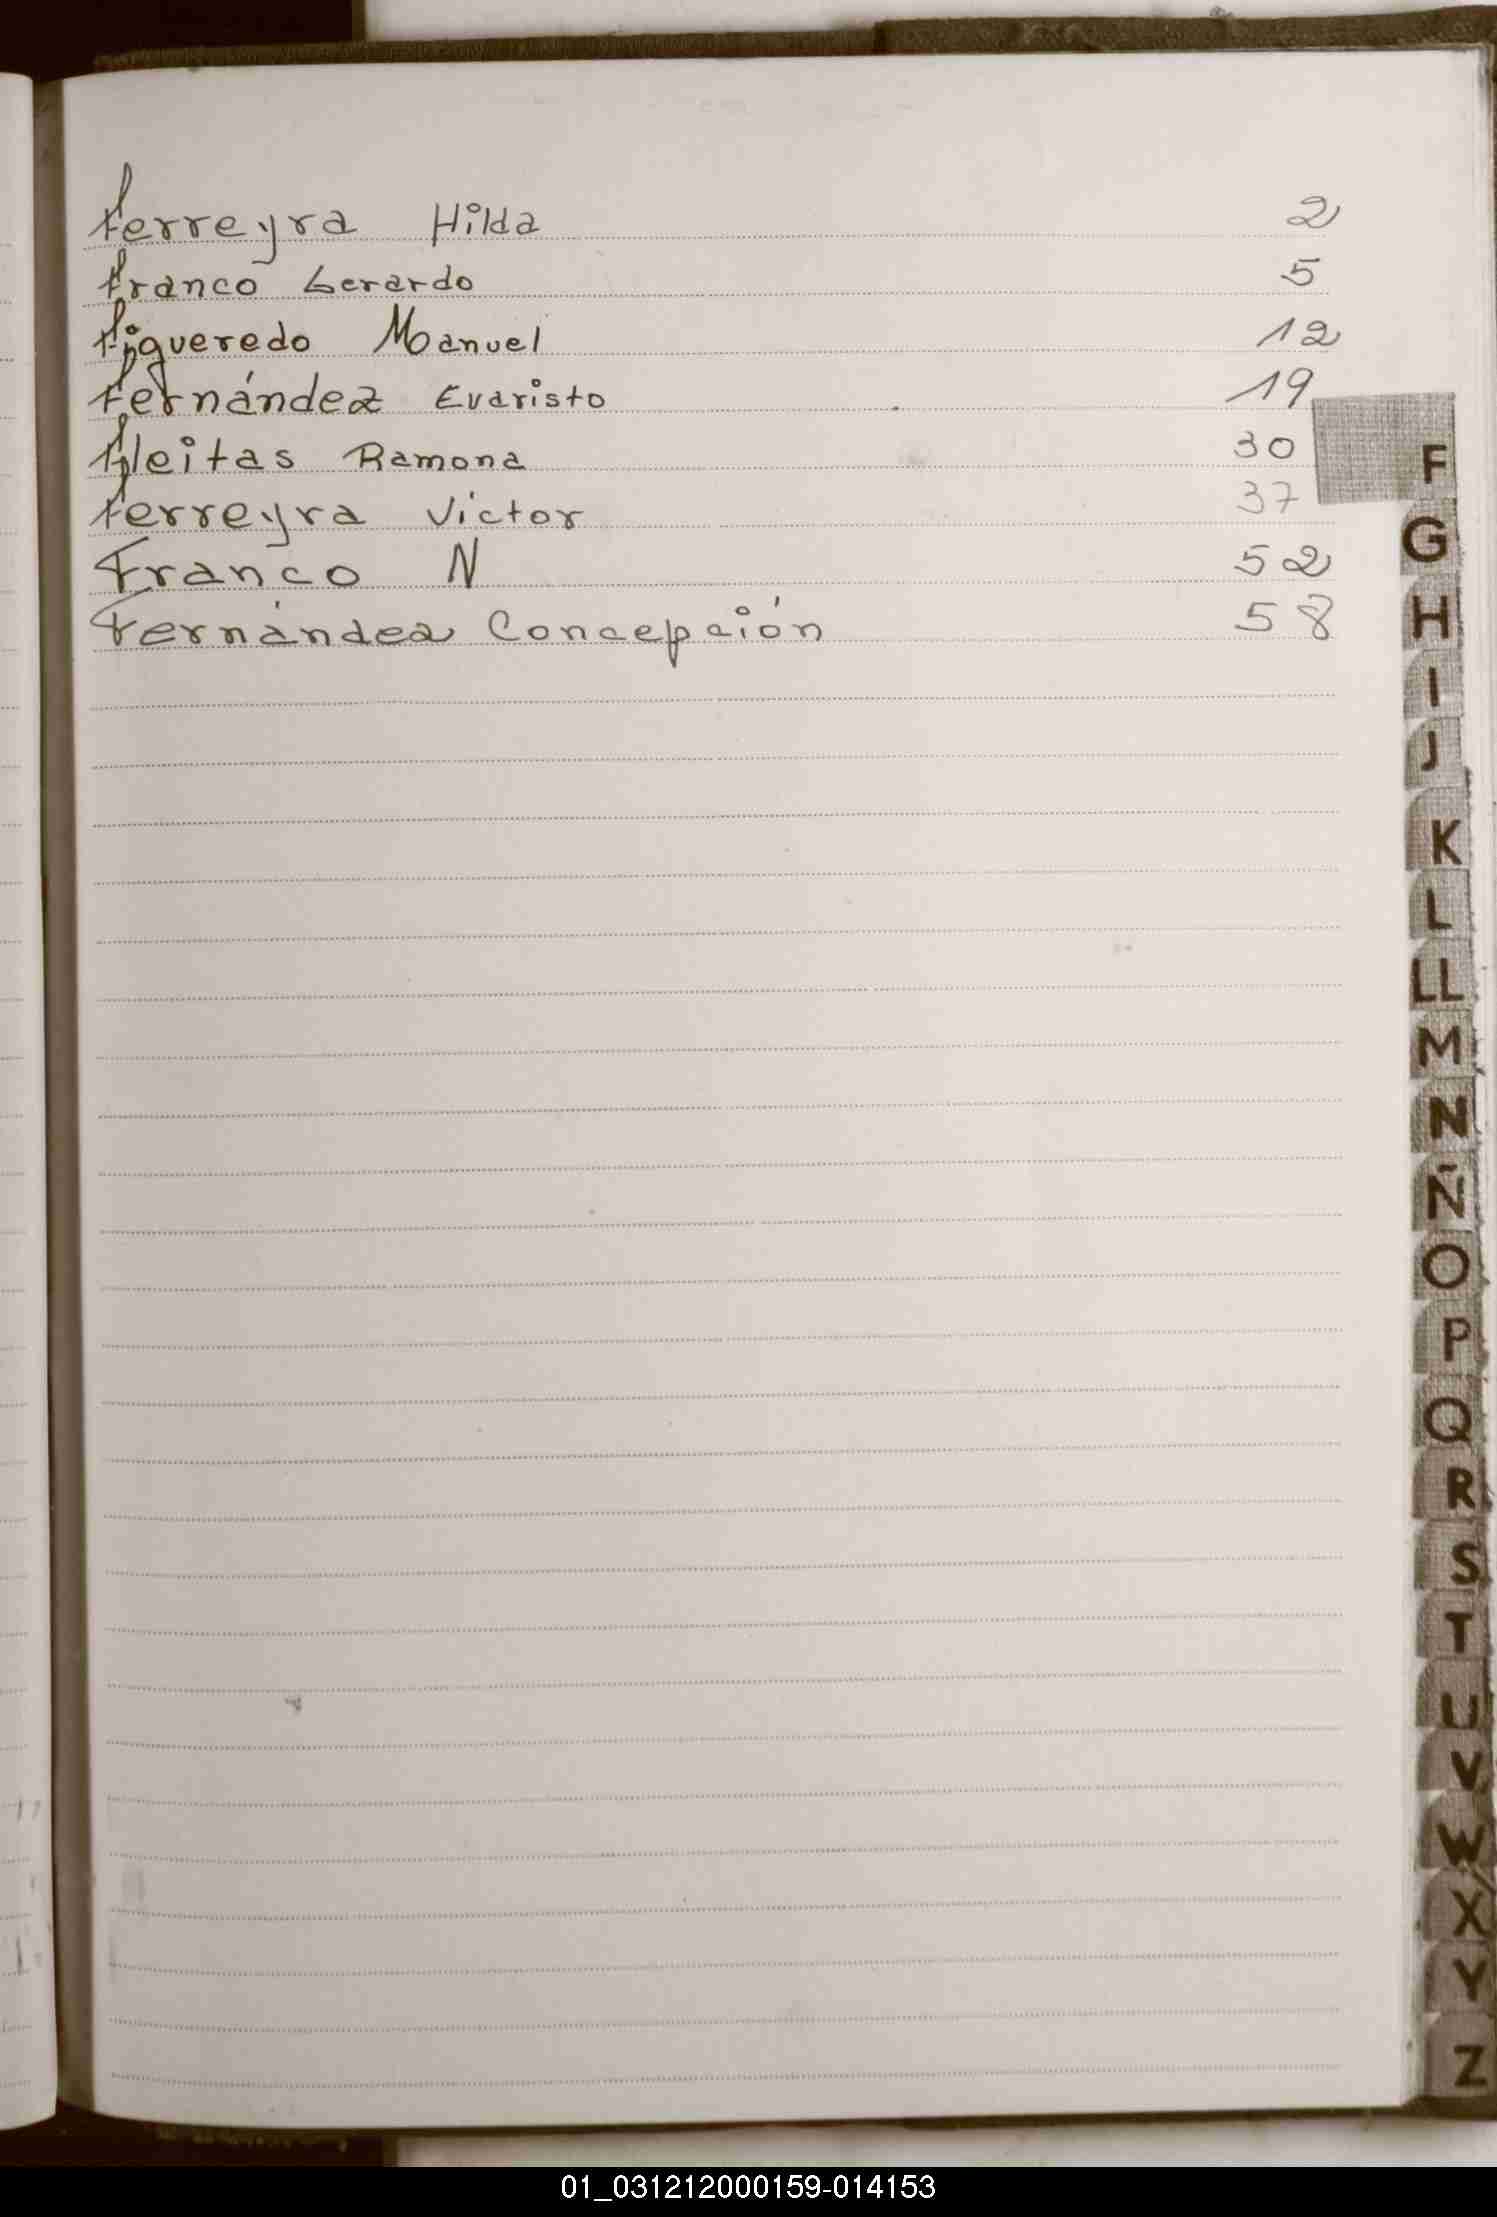 Ferreyra Hilda 2
Franco Gerardo 5
Figueredo Manuel 12
Fernández Evaristo 19
Fleitas Ramona 30
Ferreyra Victor 37
Franco N 52
Fernández Concepción 58
F
G
H
I
J
K
L
LL
M
N
Ñ
O
P
Q
R
S
T
U
V
W
X
Y
Z
01_031212000159-014153